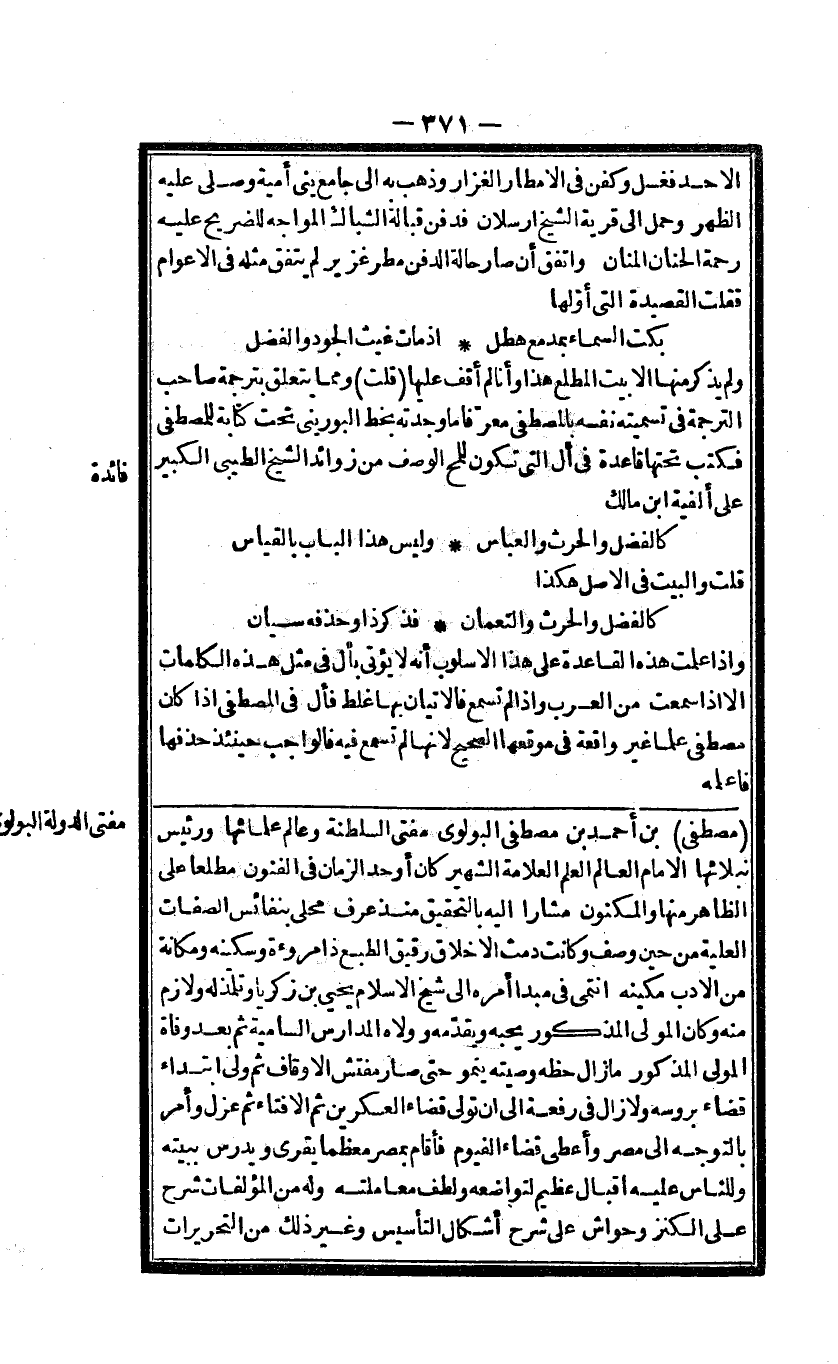 — ٣٧١ —
الاحد فغسل وكفن فى الامطار الغزار وذهب به الى جامع بنى أمية وصلى عليه
الظهر وحمل الى قرية الشيخ ارسلان فدفن قبالة الشباك المواجه للضريح عليه
رحمة الحنان المنان واتفق أن صار حالة الدفن مطر غزير لم يتفق مثله فى الاعوام
فقلت القصيدة التى أوّلها
بكت السماء بمدمع هطل * اذمات غيث الجود والفضل
ولم يذكر منها الا بيت المطلع هذا وأنا لم أقف عليها (قلت) ومما يتعلق بترجمة صاحب
الترجمة فى تسميته نفسه بالمصطفى معرّفا ما وجدته بخط البورينى تحت كتابة للمصطفى
فكتب تحتها قاعدة فى أل التى تكون للمح الوصف من زوائد الشيخ الطيبى الكبير
فائدة
على ألفية ابن مالك
كالفضل والحرث والعباس * وليس هذا الباب بالقياس
قلت والبيت فى الاصل هكذا
كالفضل والحرث والنعمان * فذكر ذا وحذفه سيان
واذا علمت هذه القاعدة على هذا الاسلوب أنه لا يؤتى بأل فى مثل هذه الكلمات
الا اذا سمعت من العرب واذا لم تسمع فالاتيان بها غلط فأل فى المصطفى اذا كان
مصطفى علما غير واقعة فى موقعها الصحيح لانها لم تسمع فيه فالواجب حينئذ حذفها
فاعلمه
مفتى الدولة البولوى
(مصطفى) بن أحمد بن مصطفى البولوى مفتى السلطنة وعالم علمائها ورئيس
نبلائها الامام العالم العلم العلامة الشهير كان أوحد الزمان فى الفنون مطلعا على
الظاهر منها والمكنون مشارا اليه بالتحقيق منذ عرف محلى بنفائس الصفات
العلية من حين وصف وكانت دمث الاخلاق رقيق الطبع ذا مروءة وسكينه ومكانة
من الادب مكينه انتمى فى مبدا أمره الى شيخ الاسلام يحيى بن زكريا وتلمذ له ولازم
منه وكان المولى المذكور يحبه ويقدّمه وولاه المدارس السامية ثم بعد وفاة
المولى المذكور مازال حظه وصيته ينمو حتى صار مفتش الاوقاف ثم ولى ابتداء
قضاء بروسه ولازال فى رفعة الى ان تولى قضاء العسكرين ثم الافتاء ثم عزل وأمر
بالتوجه الى مصر وأعطى قضاء الفيوم فأقام بمصر معظما يقرى ويدرس ببيته
وللناس عليه أقبال عظيم لتواضعه ولطف معاملته وله من المؤلفات شرح
على الكنز وحواش على شرح أشكال التأسيس وغير ذلك من التحريرات